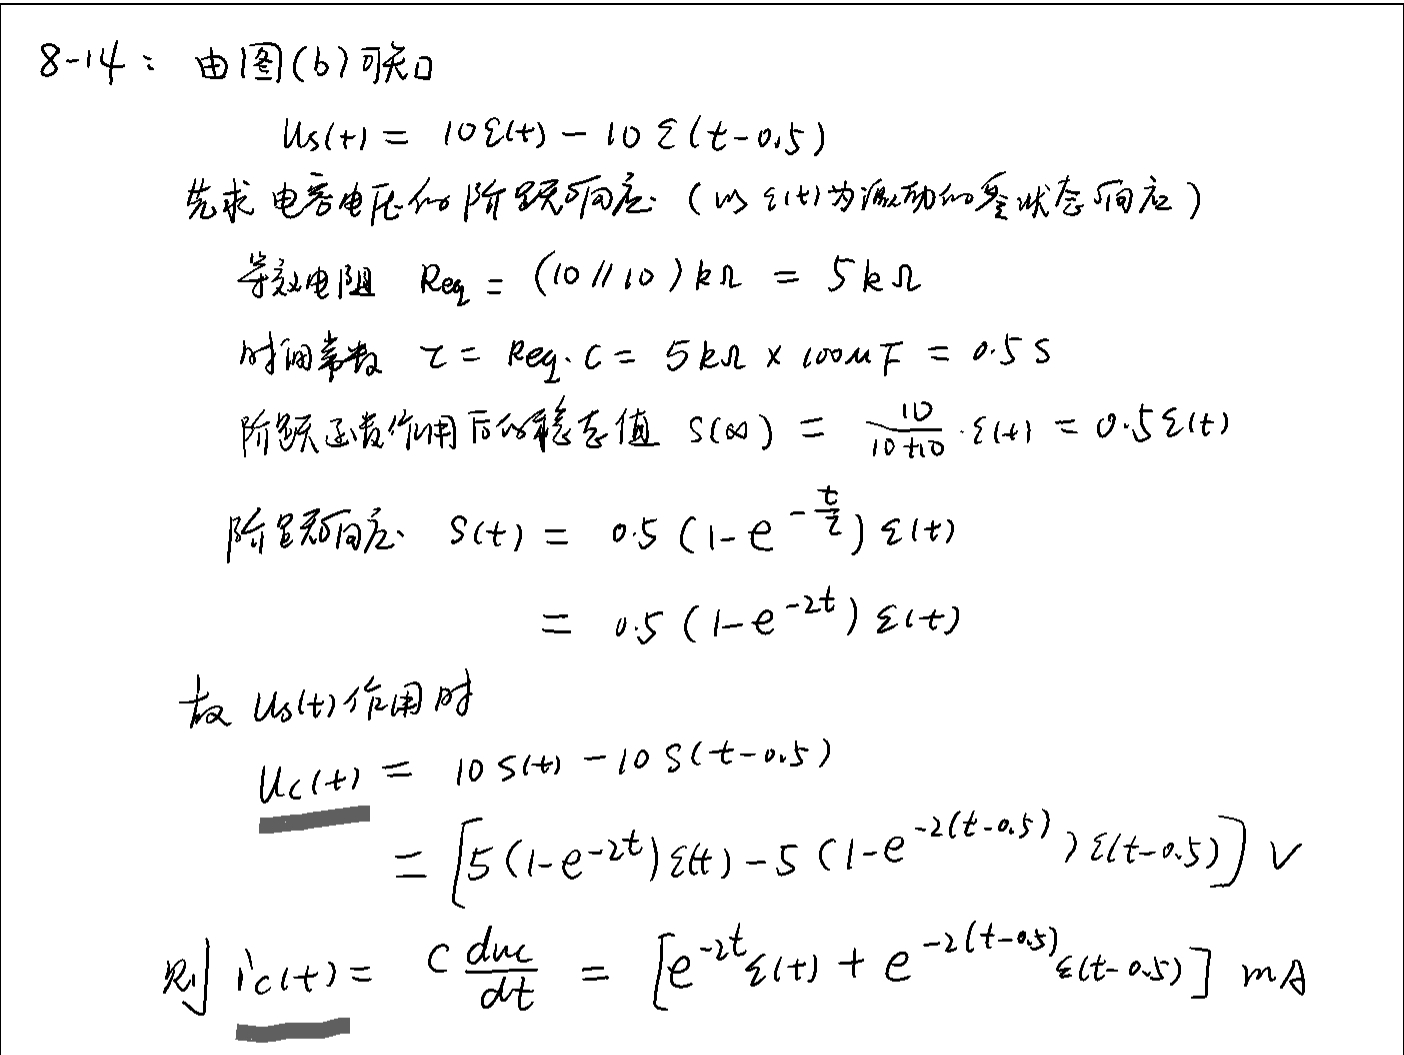 8-14: 由图(b)可知
us(t) = 10ε(t) - 10ε(t-0.5)
先求电容电压的阶跃响应 (以ε(t)为激励的零状态响应)
等效电阻 Req = (10//10)kΩ = 5kΩ
时间常数 τ = Req·C = 5kΩ × 100μF = 0.5S
阶跃函数作用后的稳态值 S(∞) = 10/(10+10) ·ε(t) = 0.5ε(t)
阶跃响应 S(t) = 0.5(1-e^(-t/τ))ε(t)
= 0.5(1-e^(-2t))ε(t)
故 us(t)作用时
uc(t) = 10S(t) - 10S(t-0.5)
= [5(1-e^(-2t))ε(t) - 5(1-e^(-2(t-0.5)))ε(t-0.5)] V
则 ic(t) = C duc/dt = [e^(-2t)ε(t) + e^(-2(t-0.5))ε(t-0.5)] mA